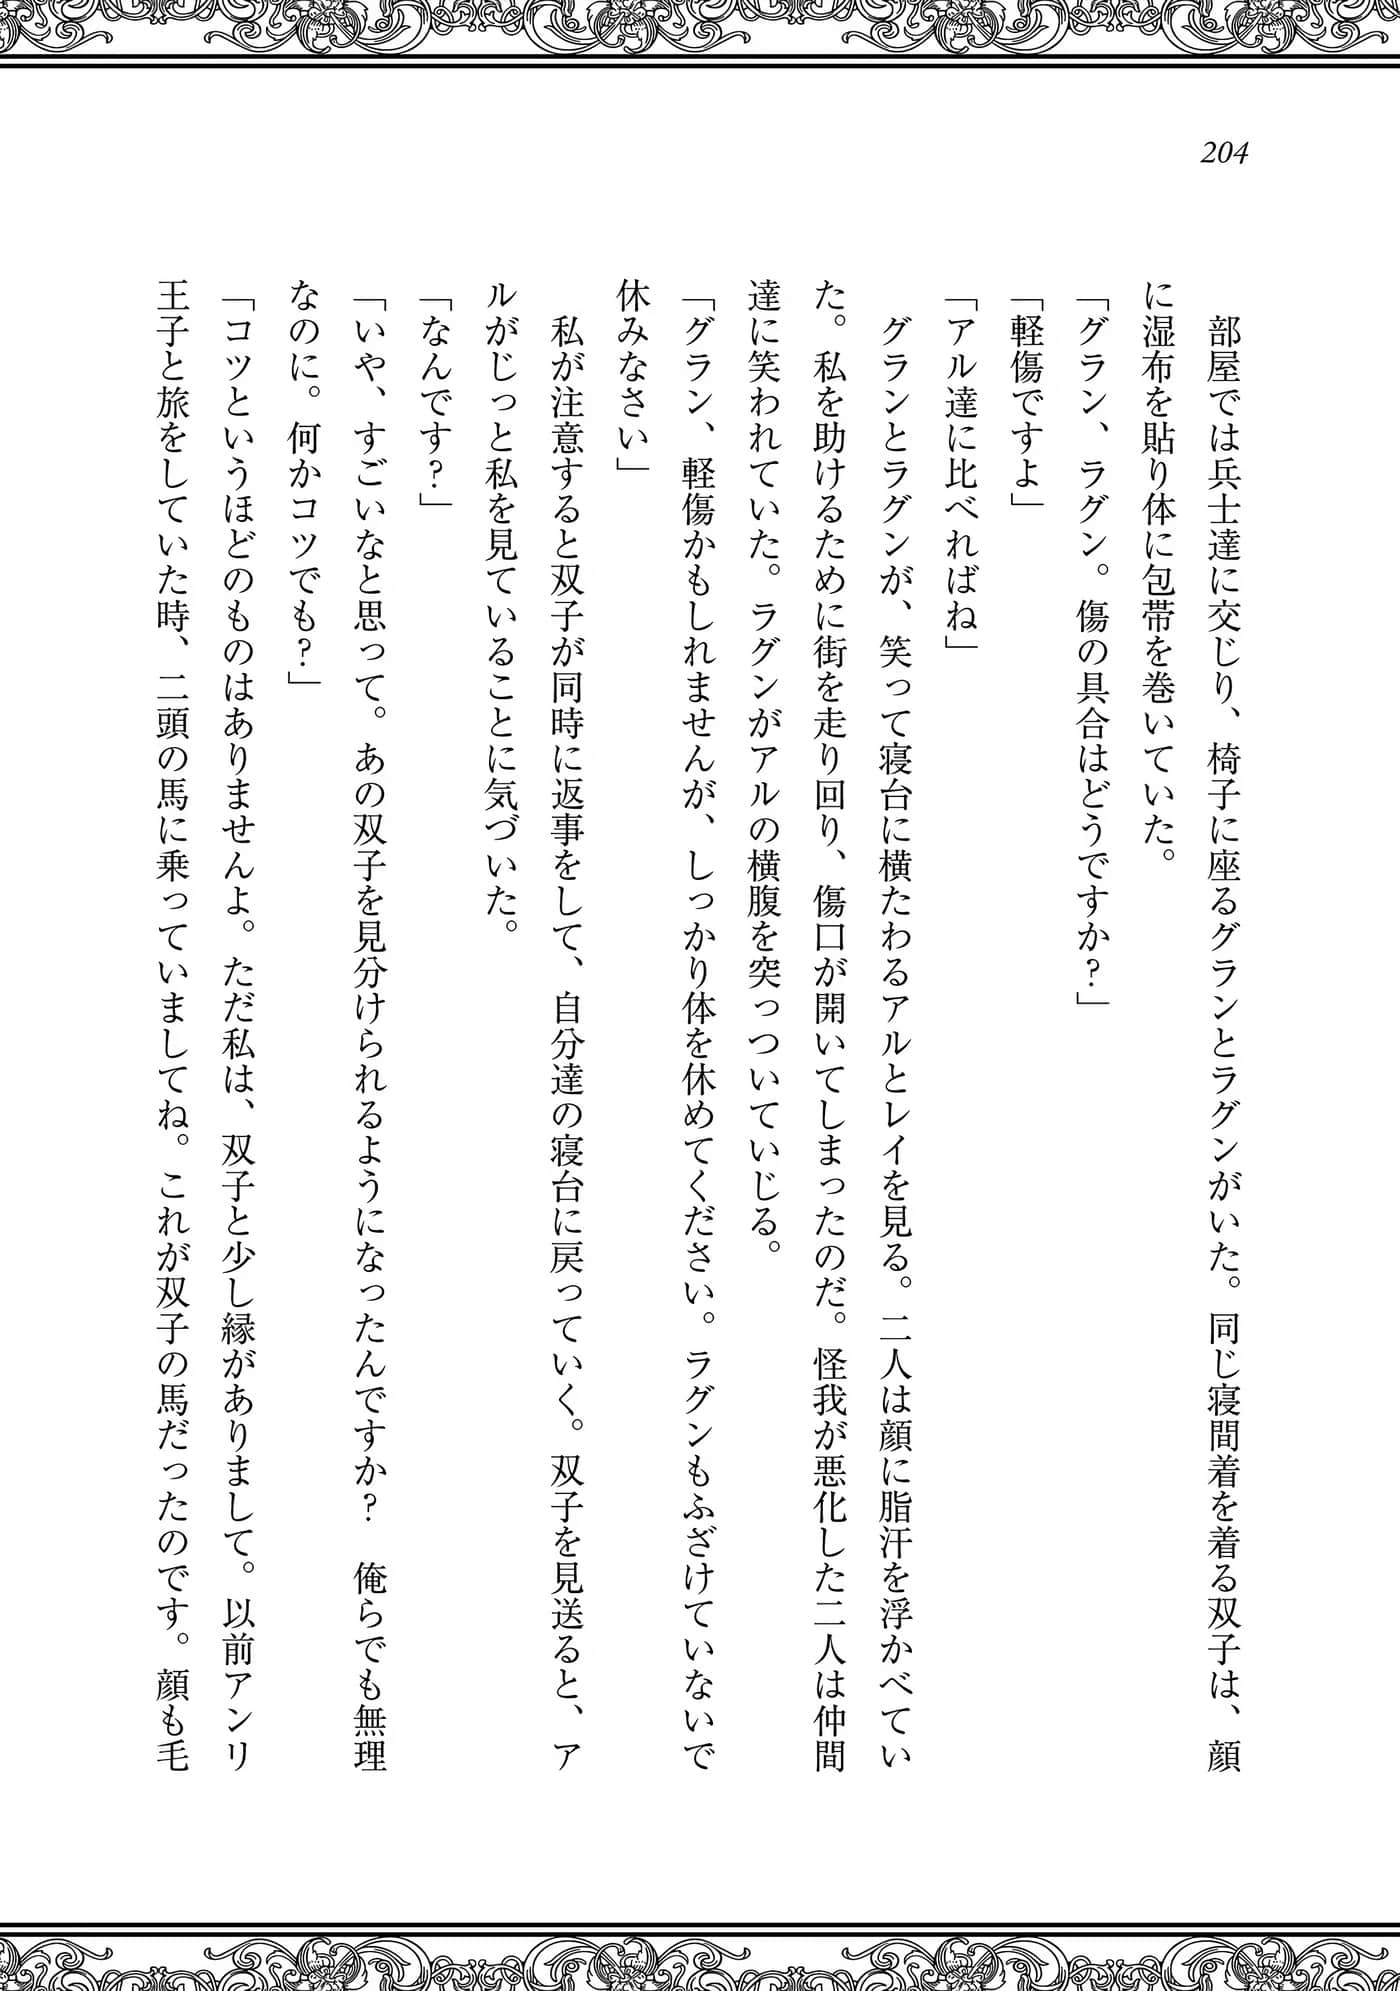 204
　部屋では兵士達に交じり、椅子に座るグランとラグンがいた。同じ寝間着を着る双子は、顔
に湿布を貼り体に包帯を巻いていた。
「グラン、ラグン。傷の具合はどうですか？」
「軽傷ですよ」
「アル達に比べればね」
　グランとラグンが、笑って寝台に横たわるアルとレイを見る。二人は顔に脂汗を浮かべてい
た。私を助けるために街を走り回り、傷口が開いてしまったのだ。怪我が悪化した二人は仲間
達に笑われていた。ラグンがアルの横腹を突っついていじる。
「グラン、軽傷かもしれませんが、しっかり体を休めてください。ラグンもふざけていないで
休みなさい」
　私が注意すると双子が同時に返事をして、自分達の寝台に戻っていく。双子を見送ると、ア
ルがじっと私を見ていることに気づいた。
「なんです？」
「いや、すごいなと思って。あの双子を見分けられるようになったんですか？　俺らでも無理
なのに。何かコツでも？」
「コツというほどのものはありませんよ。ただ私は、双子と少し縁がありまして。以前アンリ
王子と旅をしていた時、二頭の馬に乗っていましてね。これが双子の馬だったのです。顔も毛